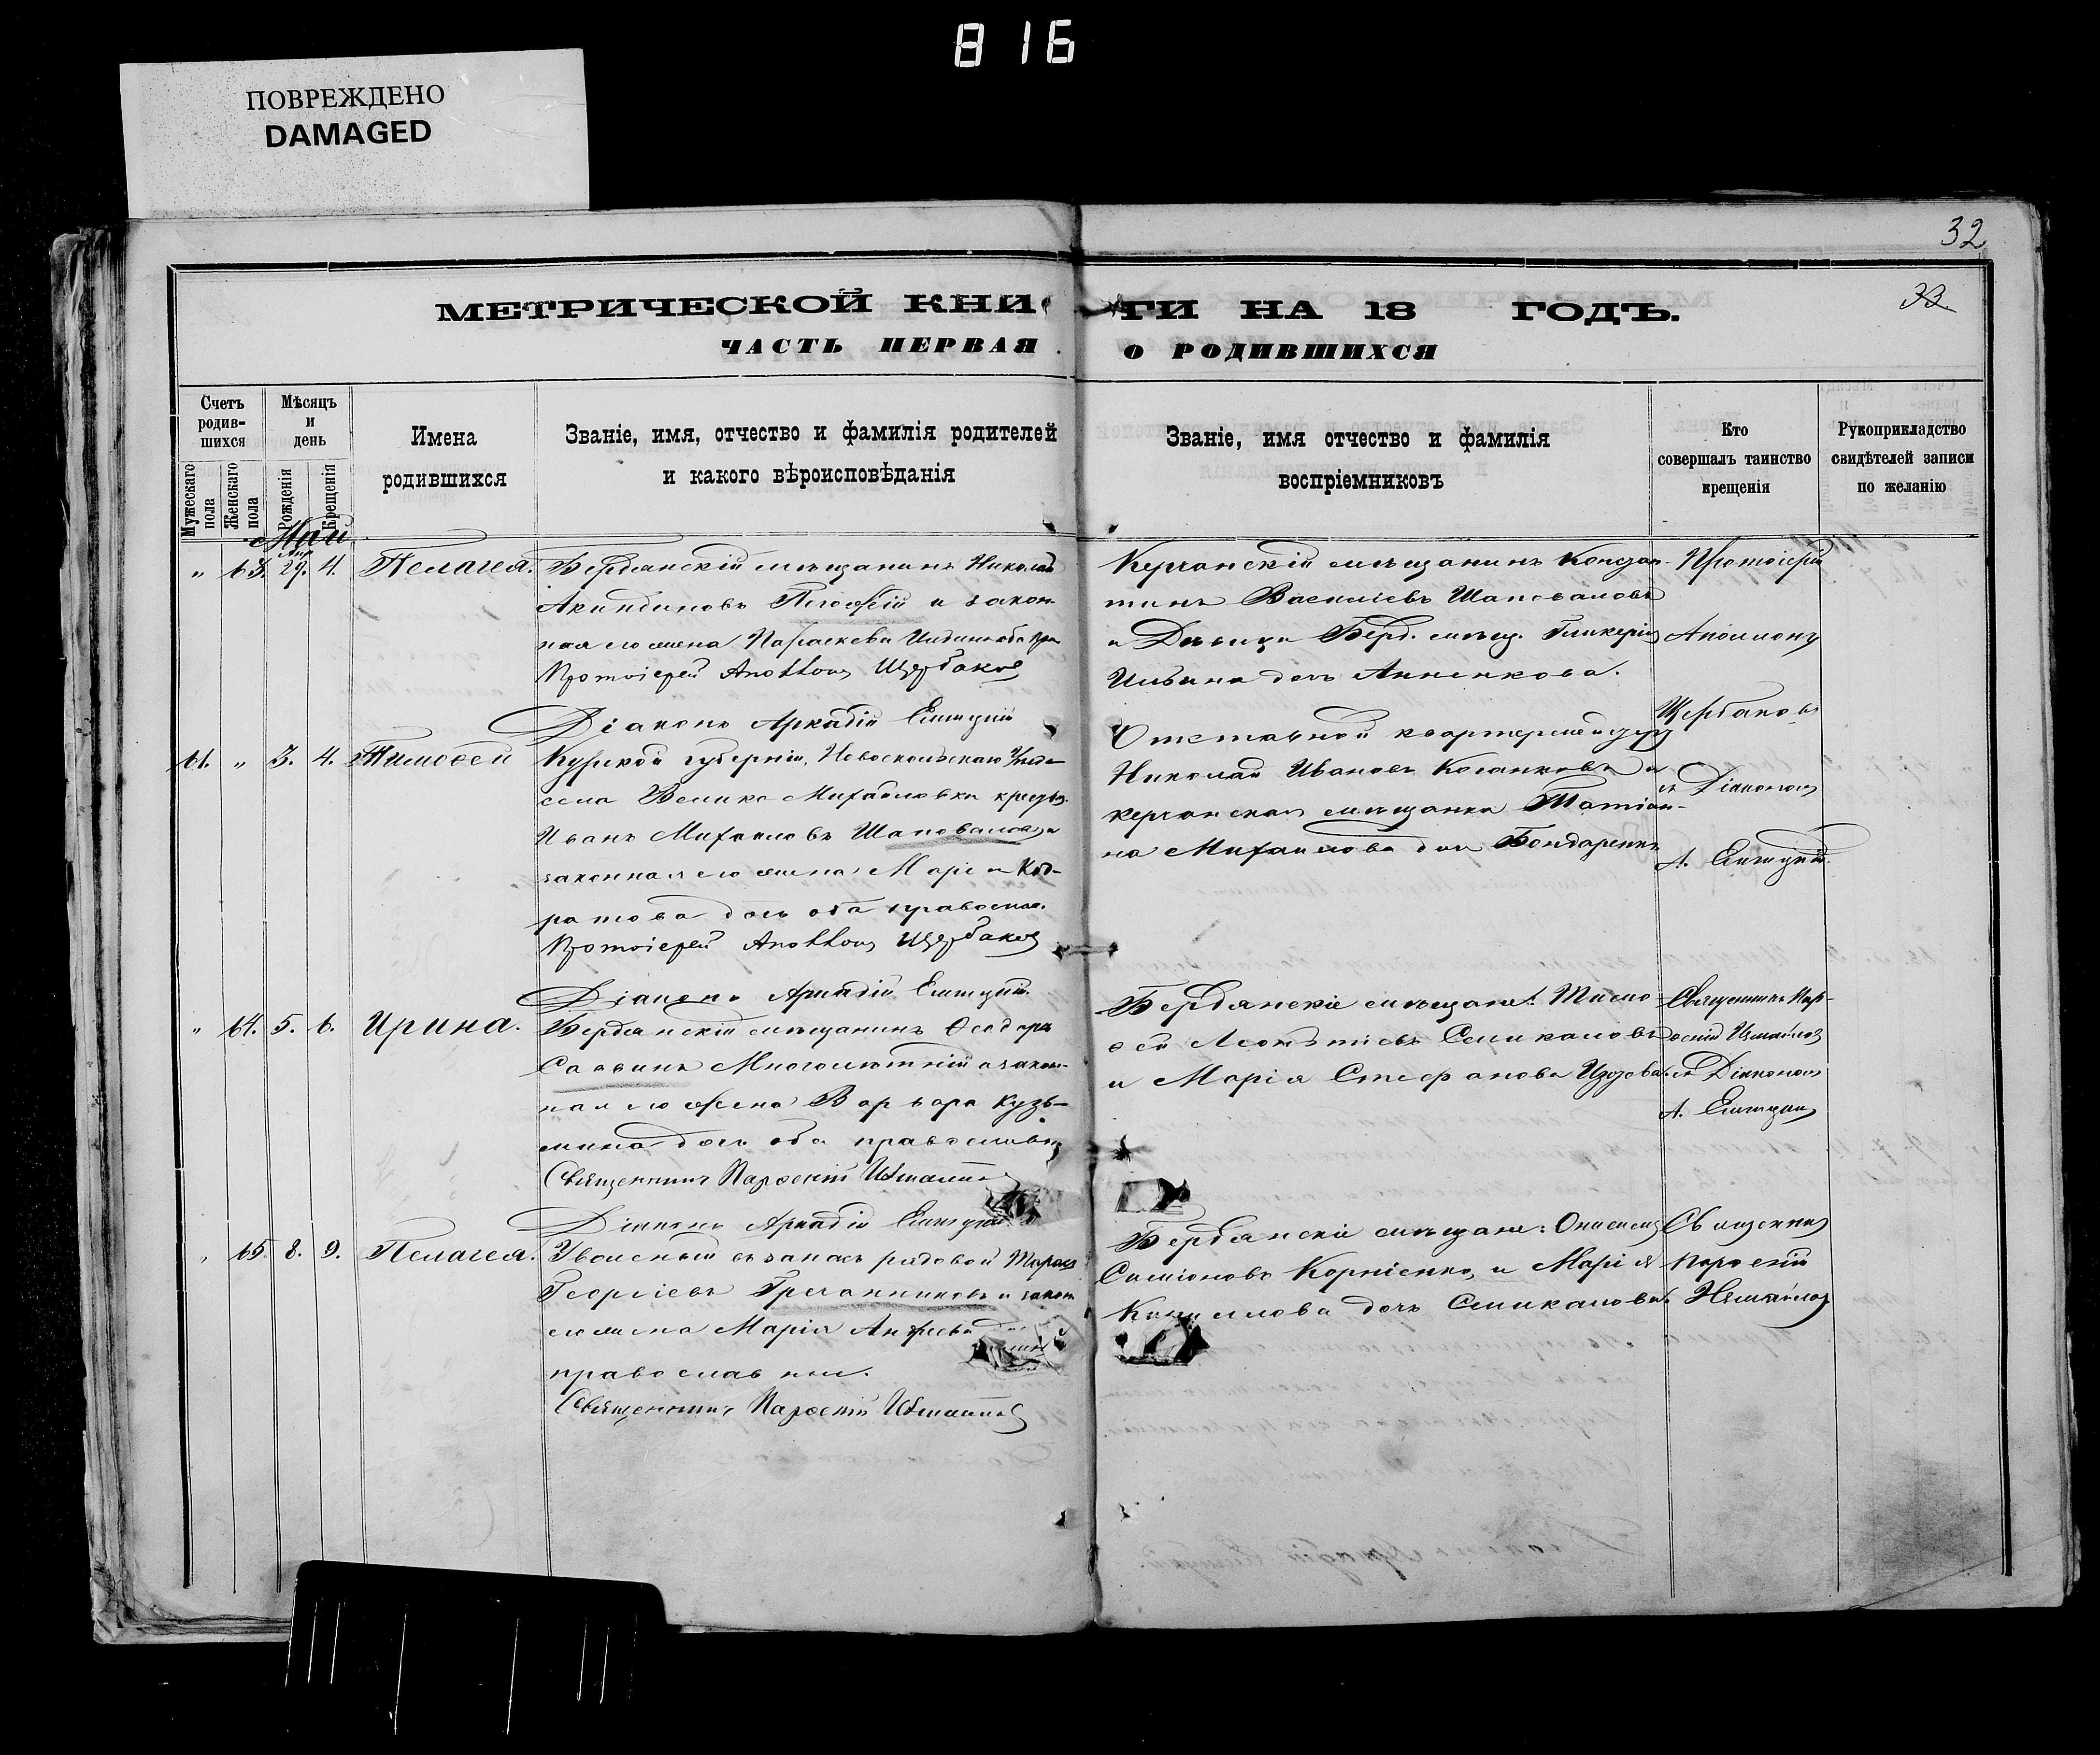 816
ПОВРЕЖДЕНО
DAMAGED
32
33
МЕТРИЧЕСКОЙ КНИГИ НА 18 ГОДЪ.
ЧАСТЬ ПЕРВАЯ О РОДИВШИХСЯ
Счетъ родившихся
Мужескаго пола
Женскаго пола
Мѣсяцъ и день
Рожденія
Крещенія
Имена родившихся
Званіе, имя, отчество и фамилія родителей
и какого вѣроисповѣданія
Званіе, имя отчество и фамилія
воспріемниковъ
Кто
совершалъ таинство
крещенія
Рукоприкладство
свидѣтелей записи
по желанію
Май
Апр
" 63. 29. 4. Пелагея.
Бердянскій мѣщанинъ Николай
Акиндиновъ и закон-
ная его жена Параскева
Протоіерей Аполлонъ Щербаковъ
Діаконъ Аркадій
Керчанскій мѣщанинъ Констан-
тинъ Василіевъ Шаповаловъ
и Дѣвица Берд. мѣщ. Гликерія
Ильина дочь Анненкова.
Протоіерей
Аполлонъ
Щербаковъ
съ Діакономъ
А.
61. " 3. 4. Тимоѳей
Курской губерніи, Новооскольскаго Уѣз-
села Велико Михайловки крест.
Иванъ Михаиловъ Шаповаловъ и
законная его жена Марія Код-
ратова дочь оба православ.
Протоіерей Аполлонъ Щербаковъ
Діаконъ Аркадій
Отставной квартермейстеръ
Николай Ивановъ и
керчанская мѣщанка Татіа-
на Михаилова дочь Бондаренко
" 64. 5. 6. Ирина.
Бердянскій мѣщанинъ Ѳеодоръ
Саввинъ Многолѣтній и закон-
ная его жена Варвара Кузь-
мина дочь оба православн.
Священникъ Парѳеній Измаиловъ
Діаконъ Аркадій
Бердянскіе мѣщане: Тимо-
ѳей Леонтіевъ Селикановъ
и Марія Стефанова
Священникъ Пар-
ѳеній Измайловъ
съ Діакономъ
А.
" 65. 8. 9. Пелагея.
Уволеный въ запасъ рядовой Тарасъ
Георгіевъ Гречанниковъ и закон
его жена Марія Андреева
православные.
Священникъ Парѳеній Измаиловъ
Бердянскіе мѣщане: Онисимъ
Симіоновъ Корніенко и Марія
Кириллова дочь Селиканова.
Священникъ
Парѳеній
Измайловъ